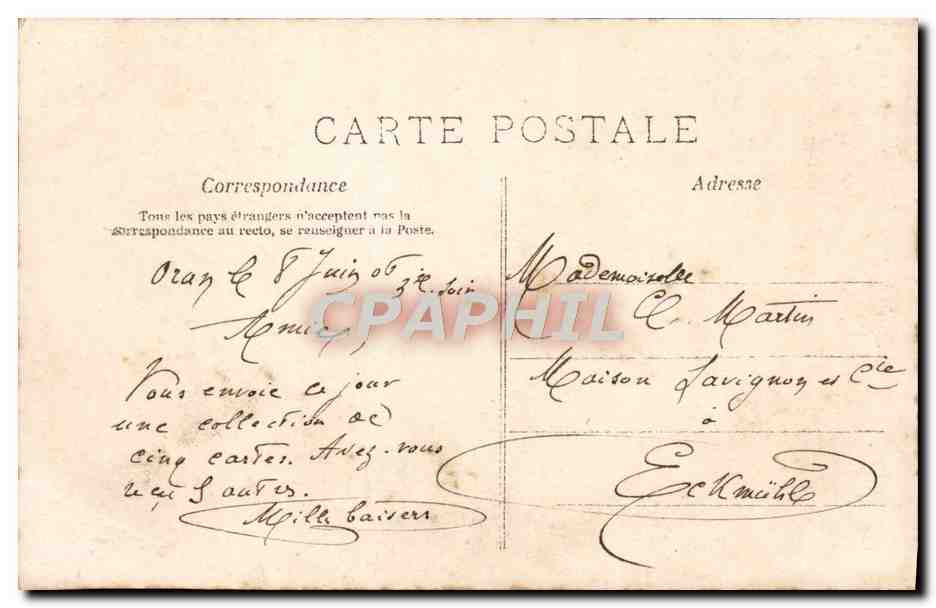 CARTE POSTALE
Correspondance
Tous les pays étrangers n'acceptent pas la
correspondance au recto, se renseigner à la Poste.
Oran le 8 Juin 06
soir
Amie
Vous envoie ce jour
une collection de
cinq cartes. Avez-vous
reçu 5 autres.
Mille baisers
Adresse
Mademoiselle
C. Martin
Maison Lavignon et Cie
à
Eckmühl
CPAPHIL